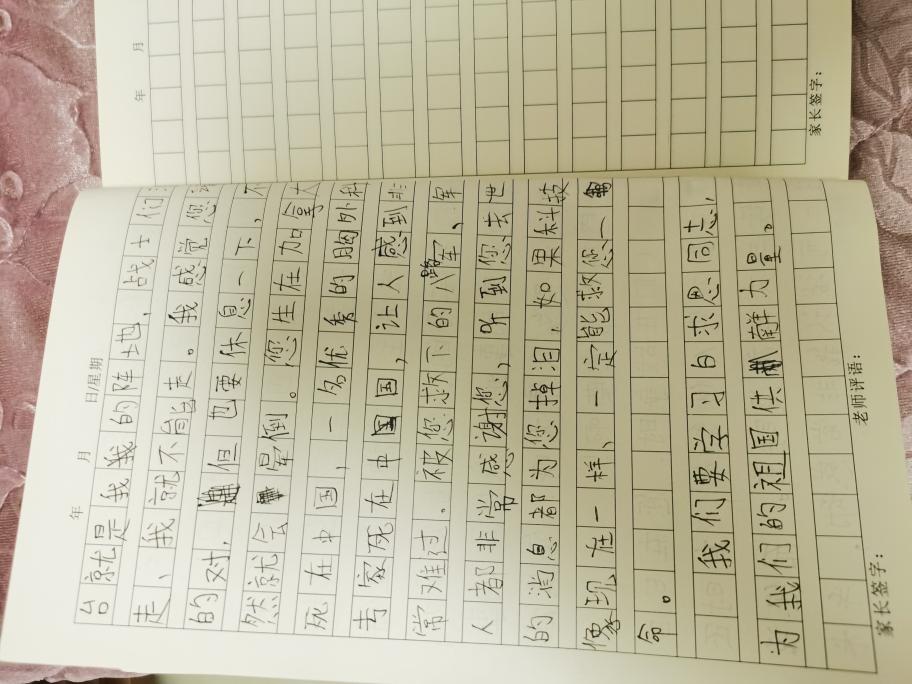 年 月
家长签字：
年 月 日/星期
台就是我的阵地，战士们
走、我就不能走。我感觉您
的对，但也要休息一下，不
然就会晕倒。您生在加拿大
死在中国，一名优秀的胸外科
专家死在中国，让人感到非
常难过。被您救下的八路军、军
人都非常感谢您，听到您去世
的消息都为您掉泪，如果科技
像现在一样、一定能救您一
命。
我们要学习白求恩同志，
为我们的祖国供献力量。
老师评语：
家长签字：